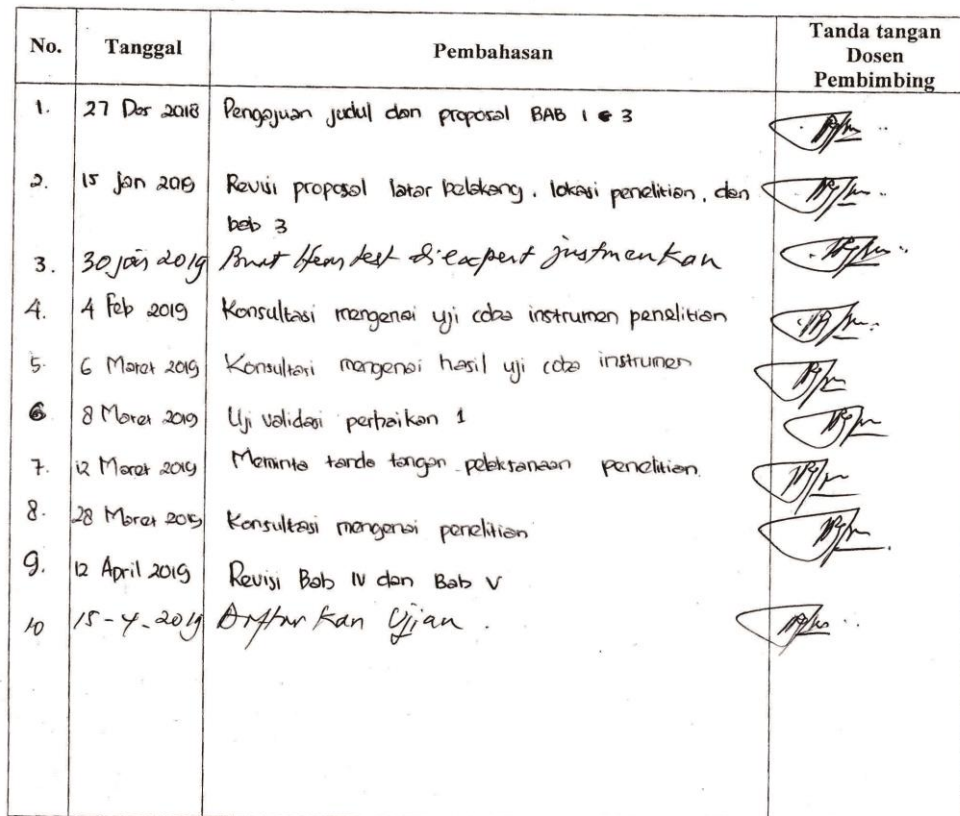 No. Tanggal Pembahasan Tanda tangan
Dosen
Pembimbing
1. 27 Des 2018 Pengajuan judul dan proposal BAB 1 3
2. 15 Jan 2019 Revisi proposal latar belakang, lokasi penelitian, dan
bab 3
3. 30 jan 2019 Buat Item test di expert justmenkan
4. 4 Feb 2019 Konsultasi mengenai uji coba instrumen penelitian
5. 6 Maret 2019 Konsultasi mengenai hasil uji coba instrumen
6. 8 Maret 2019 Uji validasi perbaikan 1
7. 12 Maret 2019 Meminta tanda tangan pelaksanaan penelitian.
8. 28 Maret 2019 Konsultasi mengenai penelitian
9. 12 April 2019 Revisi Bab IV dan Bab V
10 15-4-2019 Daftar kan Ujian.